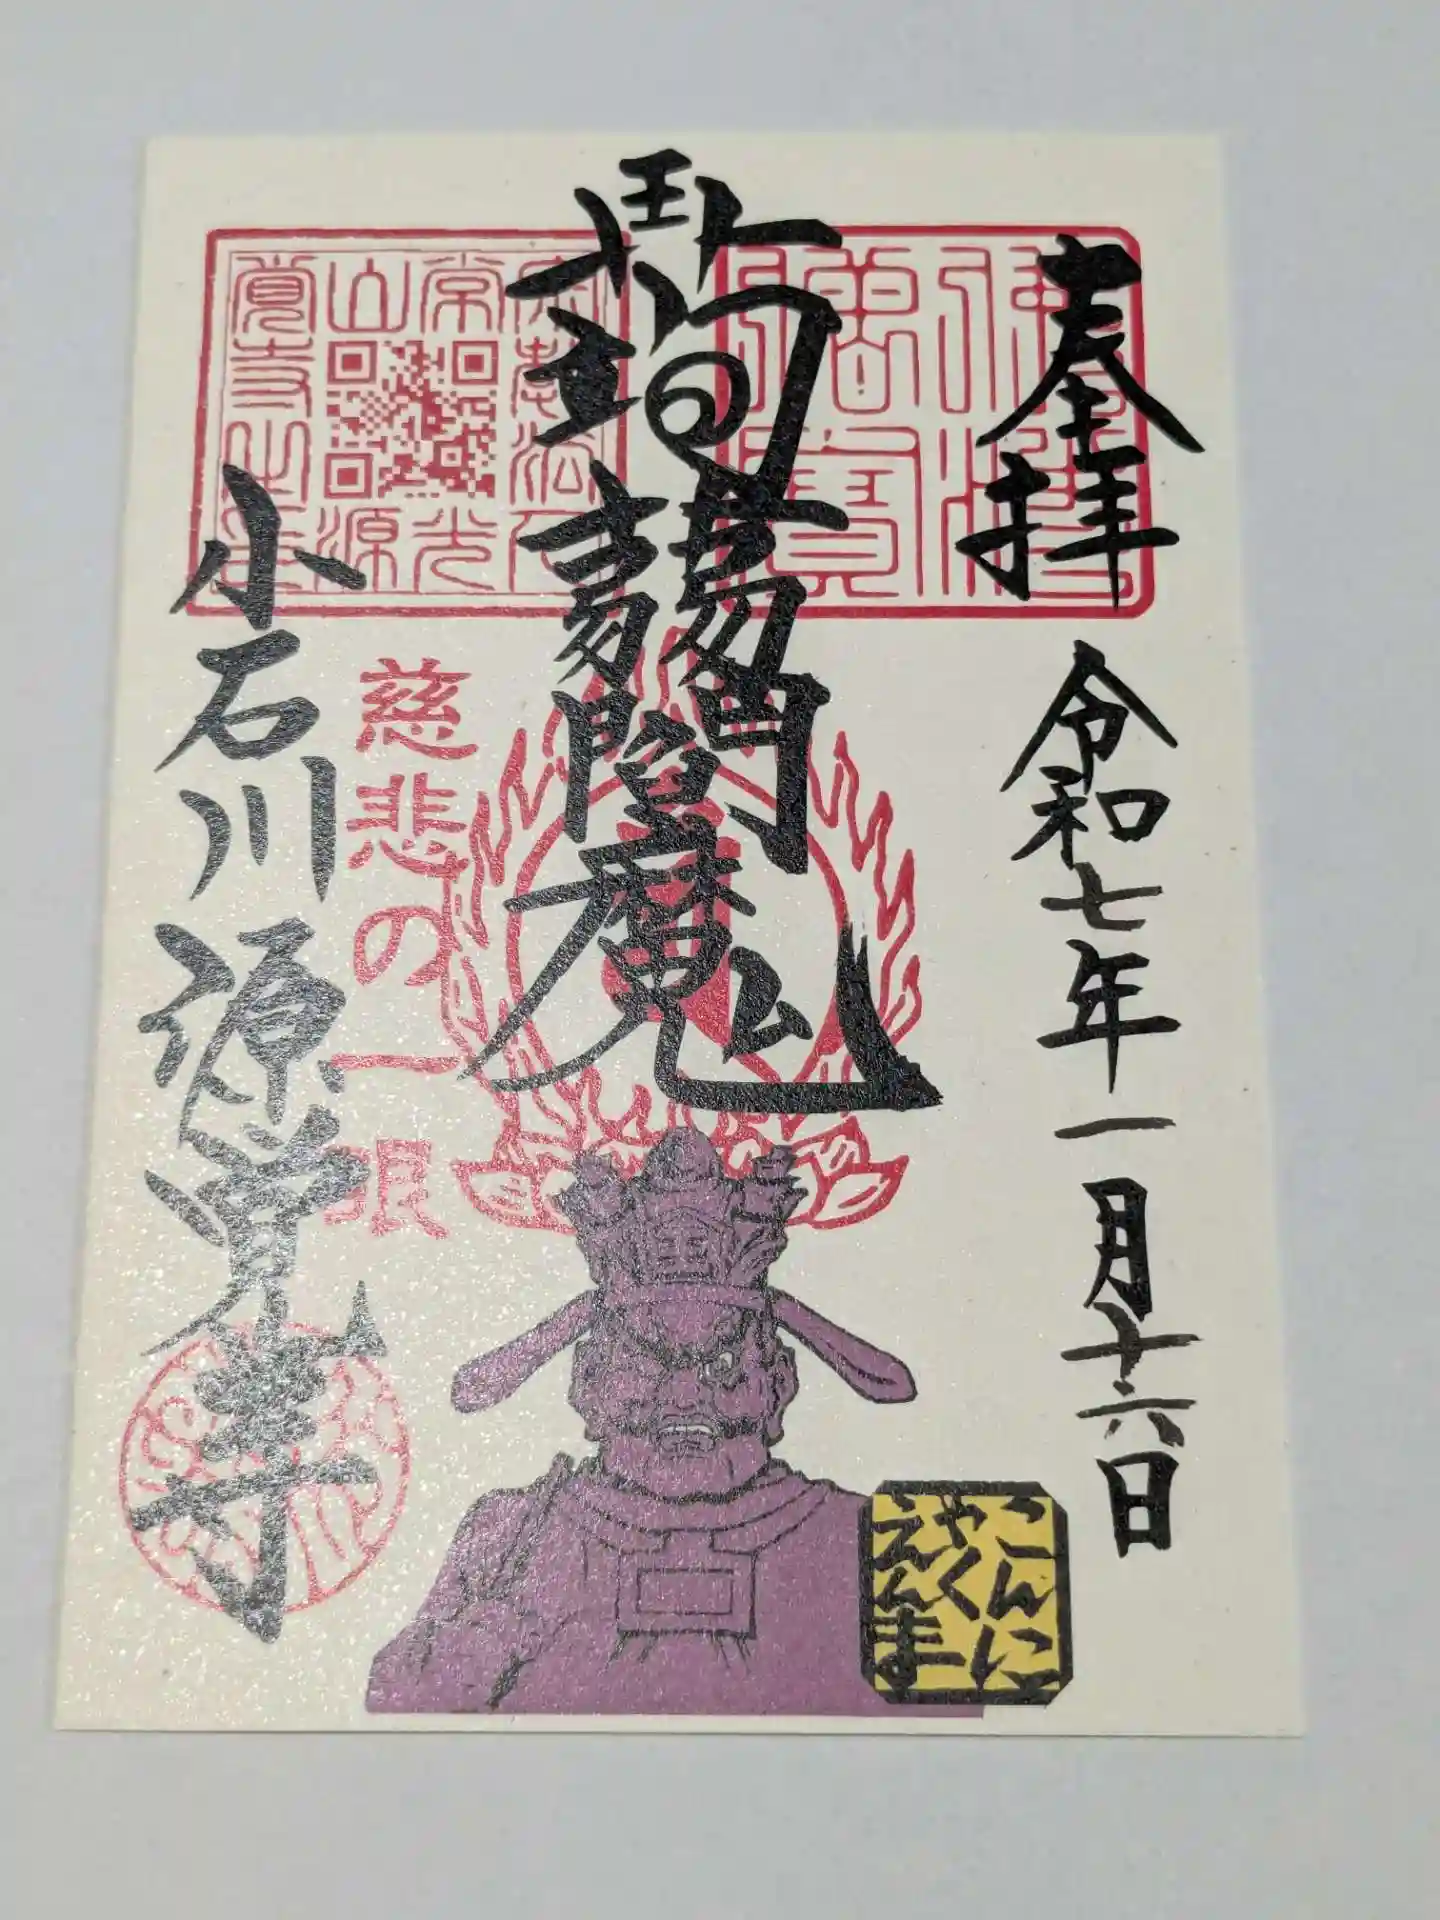 奉拝
令和七年一月十六日
蒟蒻閻魔
小石川源覚寺
慈悲の一眼
常光
山源
覚寺
こんに
ゃく
えんま